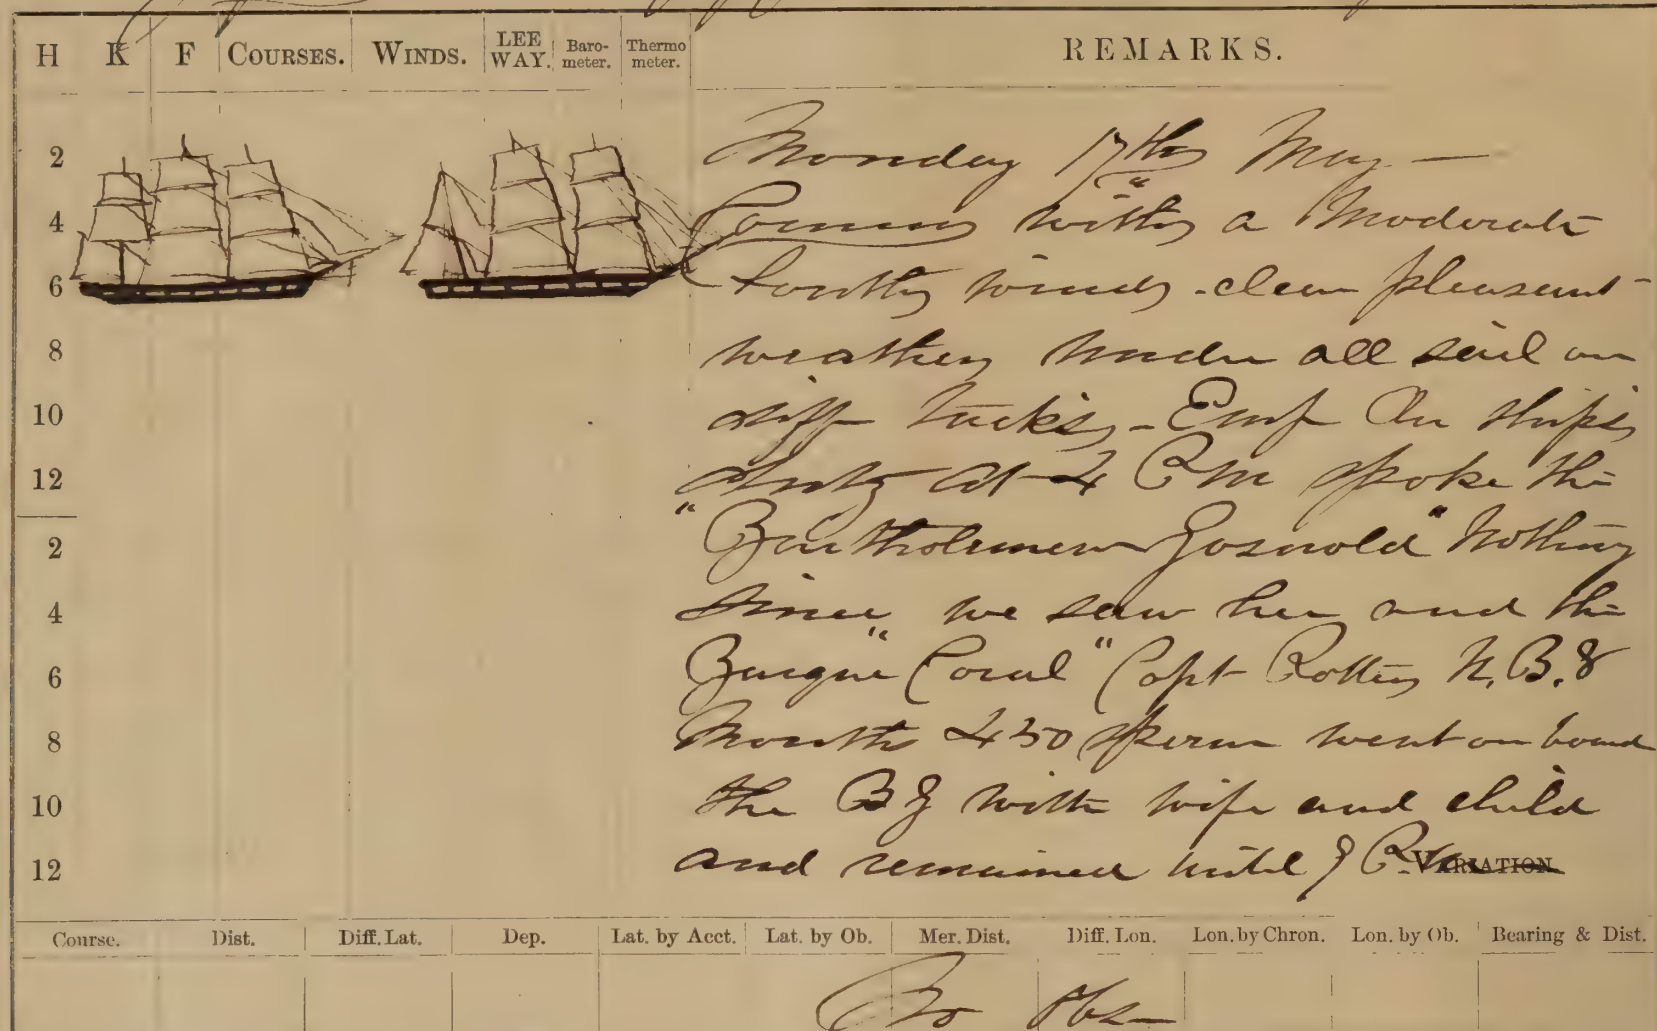 H K F COURSES. WINDS. LEE WAY. Baro-meter. Thermo meter. REMARKS.
2 Monday 17th May —
4 Comes with a Moderate
6 Southly winds - clear pleasant
8 weather under all sail on
10 diff tacks - Emp on ships
12 duty at 4 PM spoke the
2 "Bartholomew Gosnold" Nothing
4 since we saw her and the
6 Barque "Coral" Capt N.B. 8
8 Months 450 sperm went on board
10 the B G with wife and child
12 and remained until PM VARIATION
Course. Dist. Diff. Lat. Dep. Lat. by Acct. Lat. by Ob. Mer. Dist. Diff. Lon. Lon. by Chron. Lon. by Ob. Bearing & Dist.
No Obs